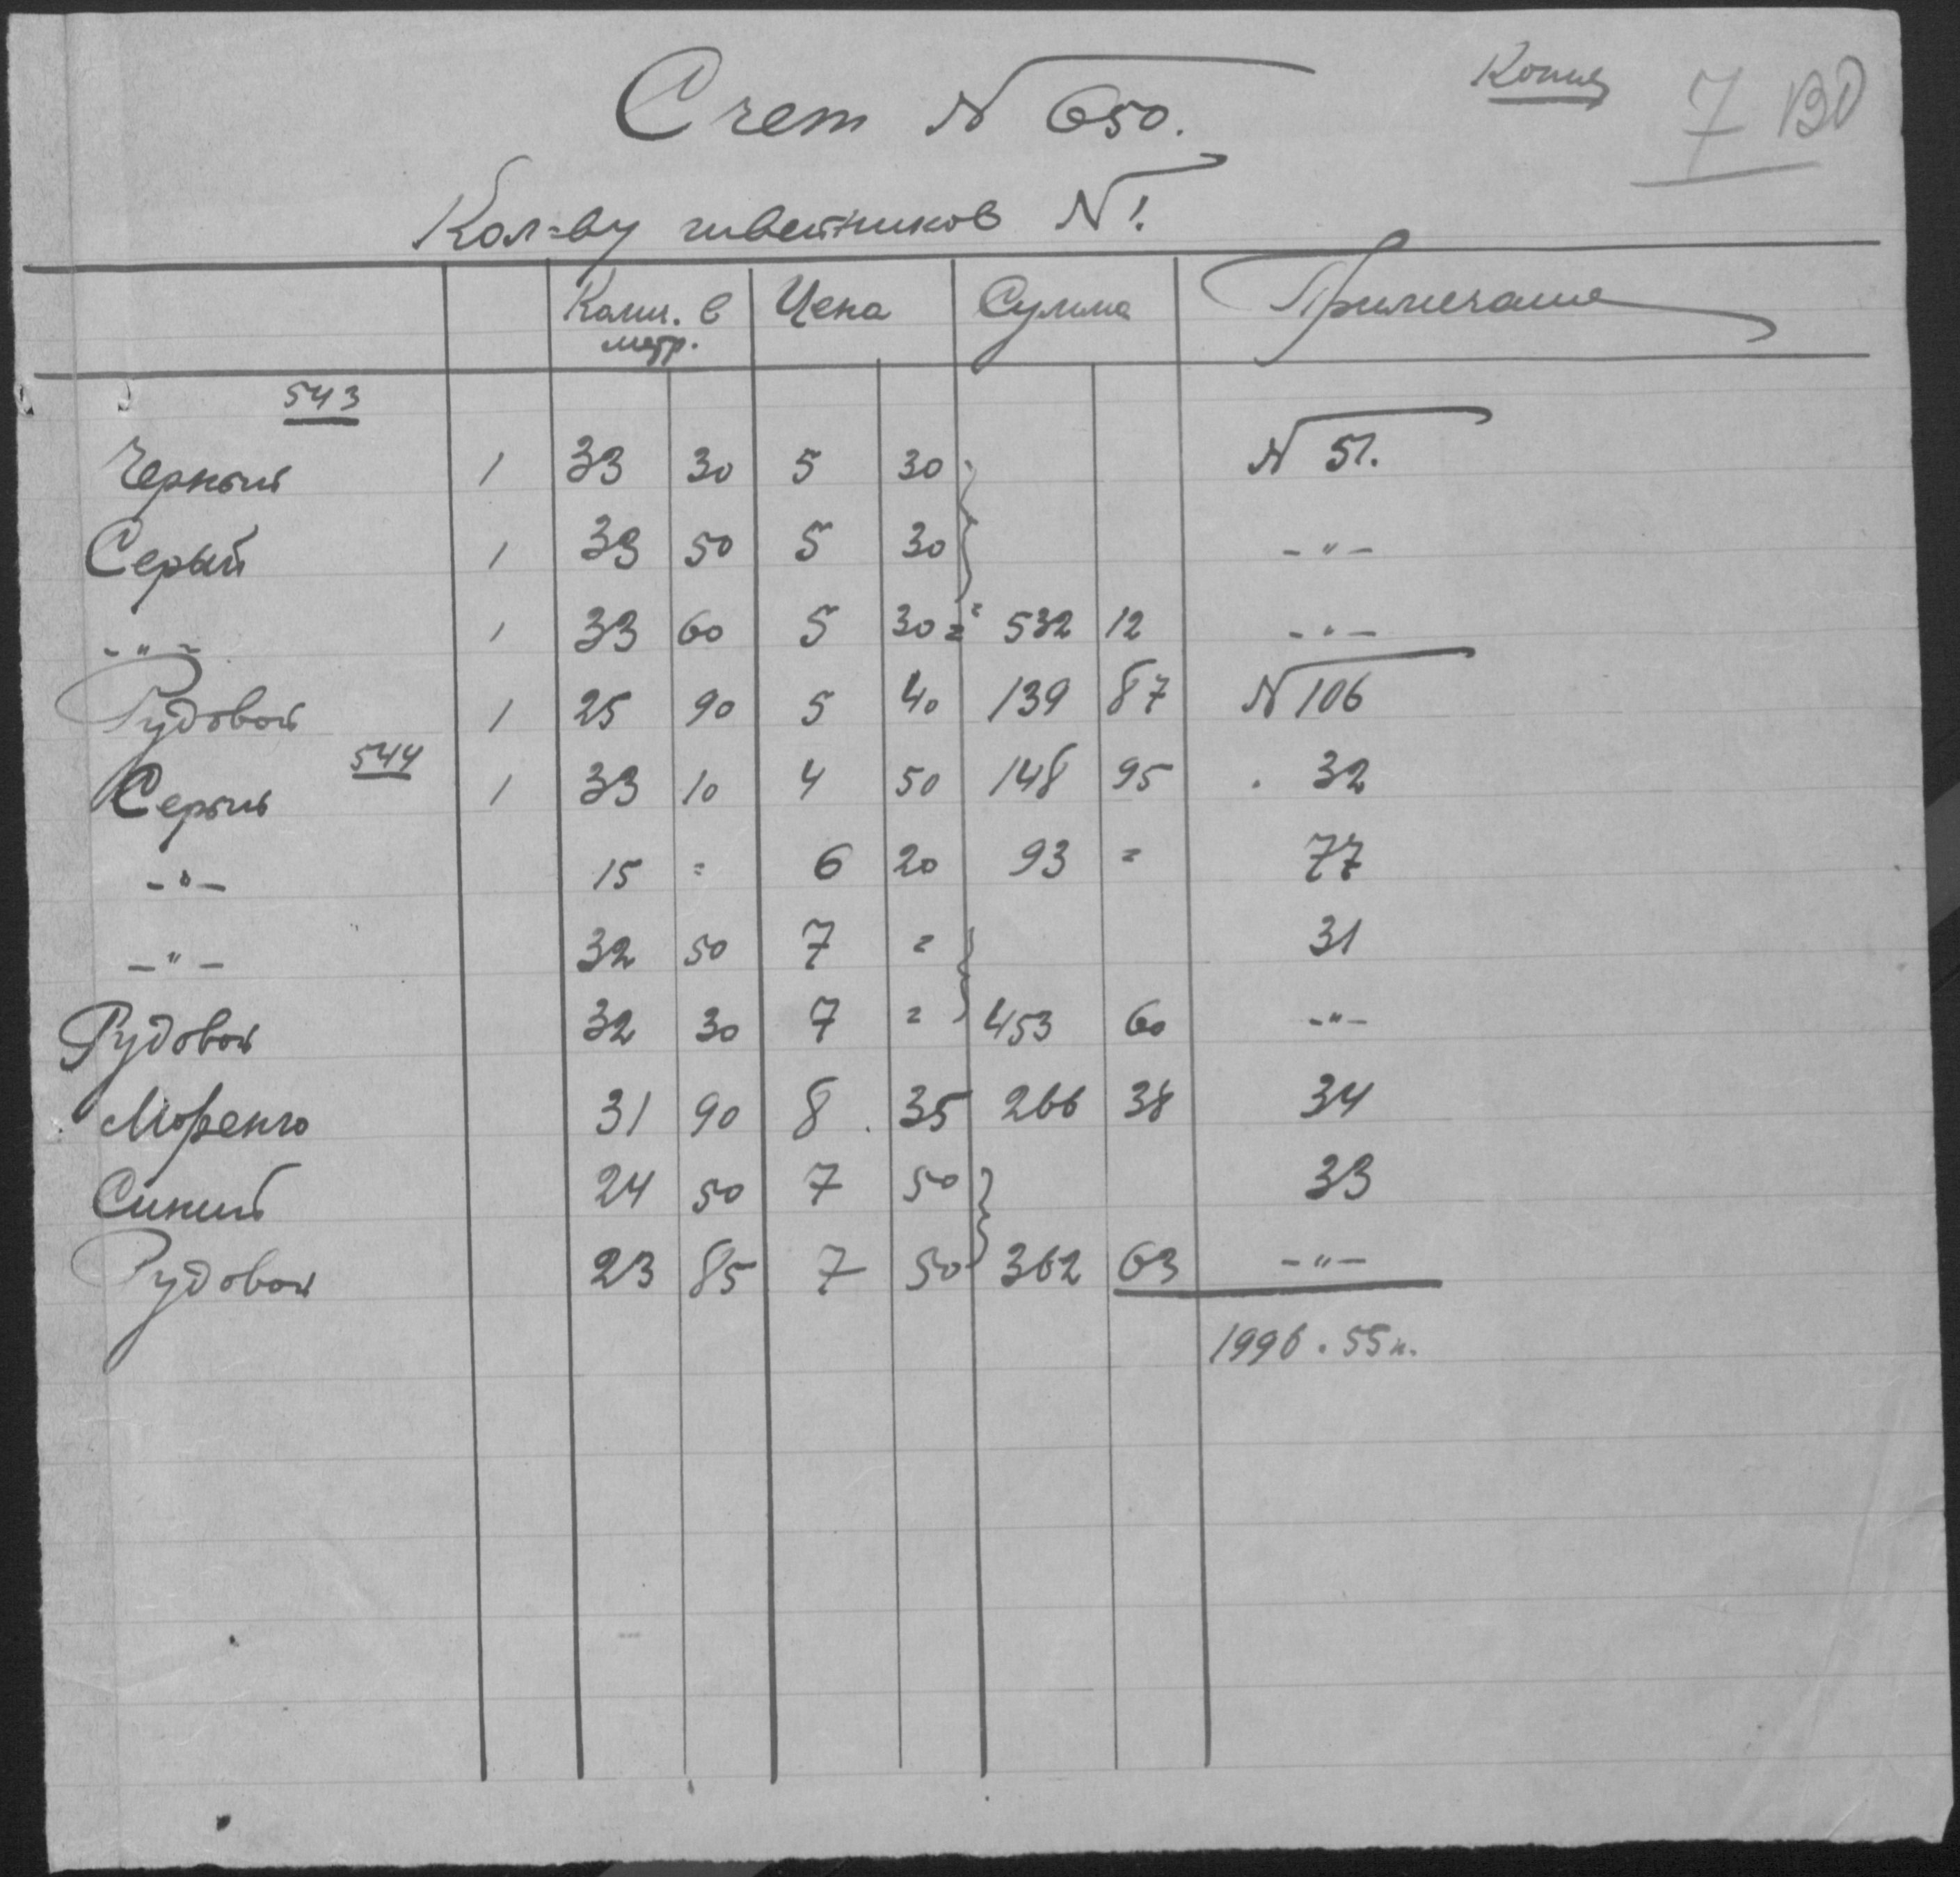 Копия
7 ВО
Счет № 650.
Кол-ву швейников № 1.
Колич. в метр. Цена Сумма Примечание
543
Черный 1 33 30 5 30 № 51.
Серый 1 33 50 5 30 -"-
-"- 1 33 60 5 30 = 532 12 -"-
Рудовой 1 25 90 5 40 139 87 № 106
544
Серый 1 33 10 4 50 148 95 . 32
-"- 15 = 6 20 93 = 77
-"- 32 50 7 = 31
Рудовой 32 30 7 = 453 60 -"-
Моренго 31 90 8 . 35 266 38 34
Синий 24 50 7 50 33
Рудовой 23 85 7 50 362 63 -"-
1996 . 55 к.